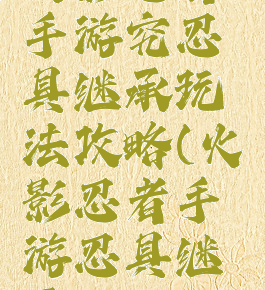 手游究忍
具继承玩
法攻略(火
影忍者手
游忍具继